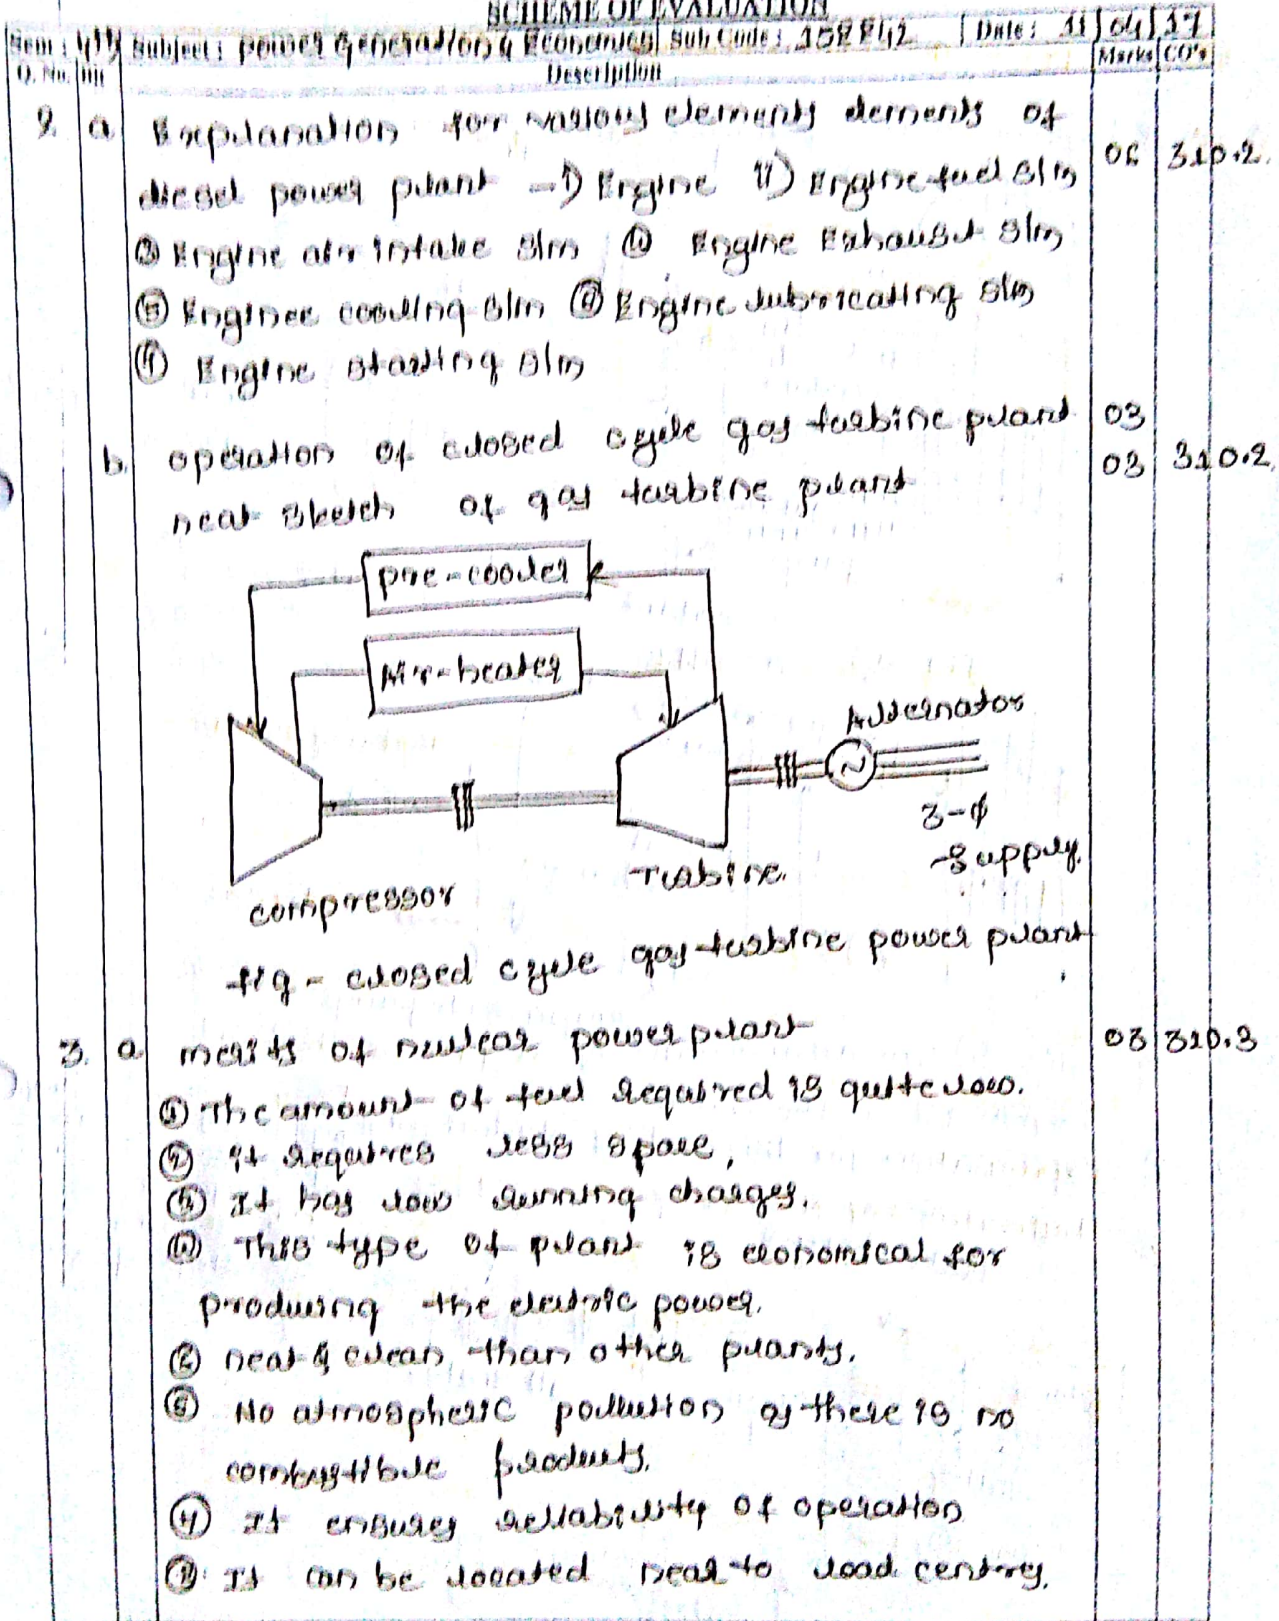 SCHEME OF EVALUATION
Subject: power generation & Economics Sub Code: 15EE42 Date: 11/04/17
Q. No. Bit Description Marks CO's
2 a Expulanation for various elements elements of
diesel power plant -1) Engine 11) Engine fuel S/m 06 310.2
③ Engine air intake S/m ④ Engine Exhaust S/m
⑤ Enginee cooling S/m ⑥ Engine lubricating S/m
⑦ Engine starting S/m
b. operation of closed cycle gas turbine plant 03
neat sketch of gas turbine plant 03 310.2
pre-cooler
Air-heater
Alternator
3-φ
supply.
Turbine.
compressor
fig - closed cycle gas-turbine power plant
3. a merits of nuclear power plant 03 310.3
① The amount of fuel required is quite low.
② It requires less space,
③ It has low running charges.
④ This type of plant is economical for
producing the electric power.
⑤ neat & clean than other plants.
⑥ No atmospheric pollution as there is no
combustible products.
⑦ It ensures reliability of operation
⑧ It can be located near to load centres.